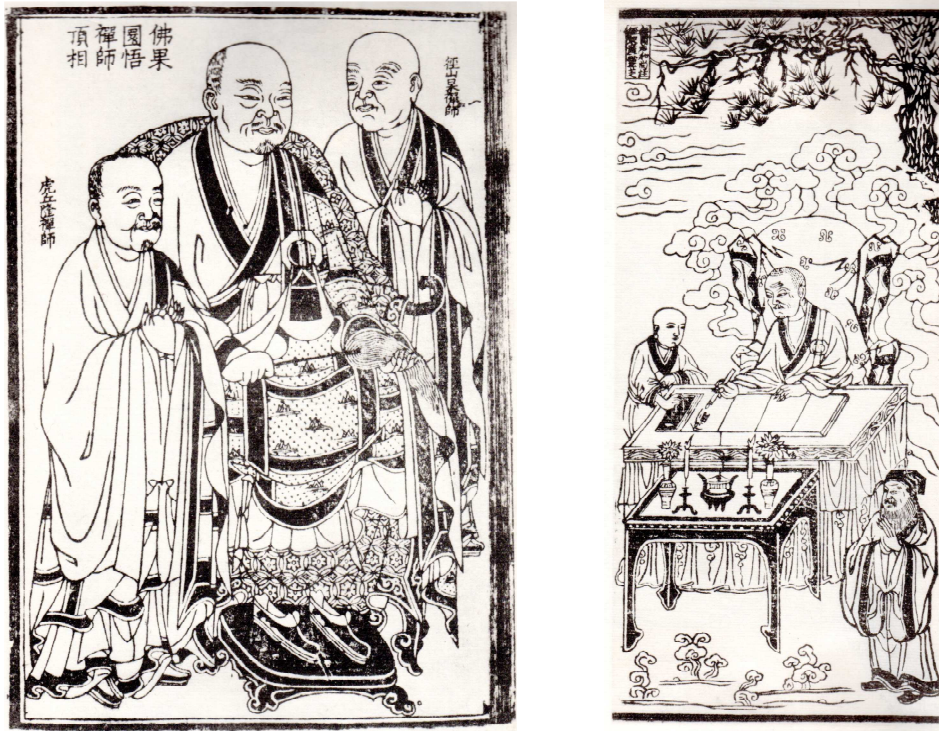 佛果
圜悟
禪師
頂相
徑山杲禪師
虎丘隆禪師